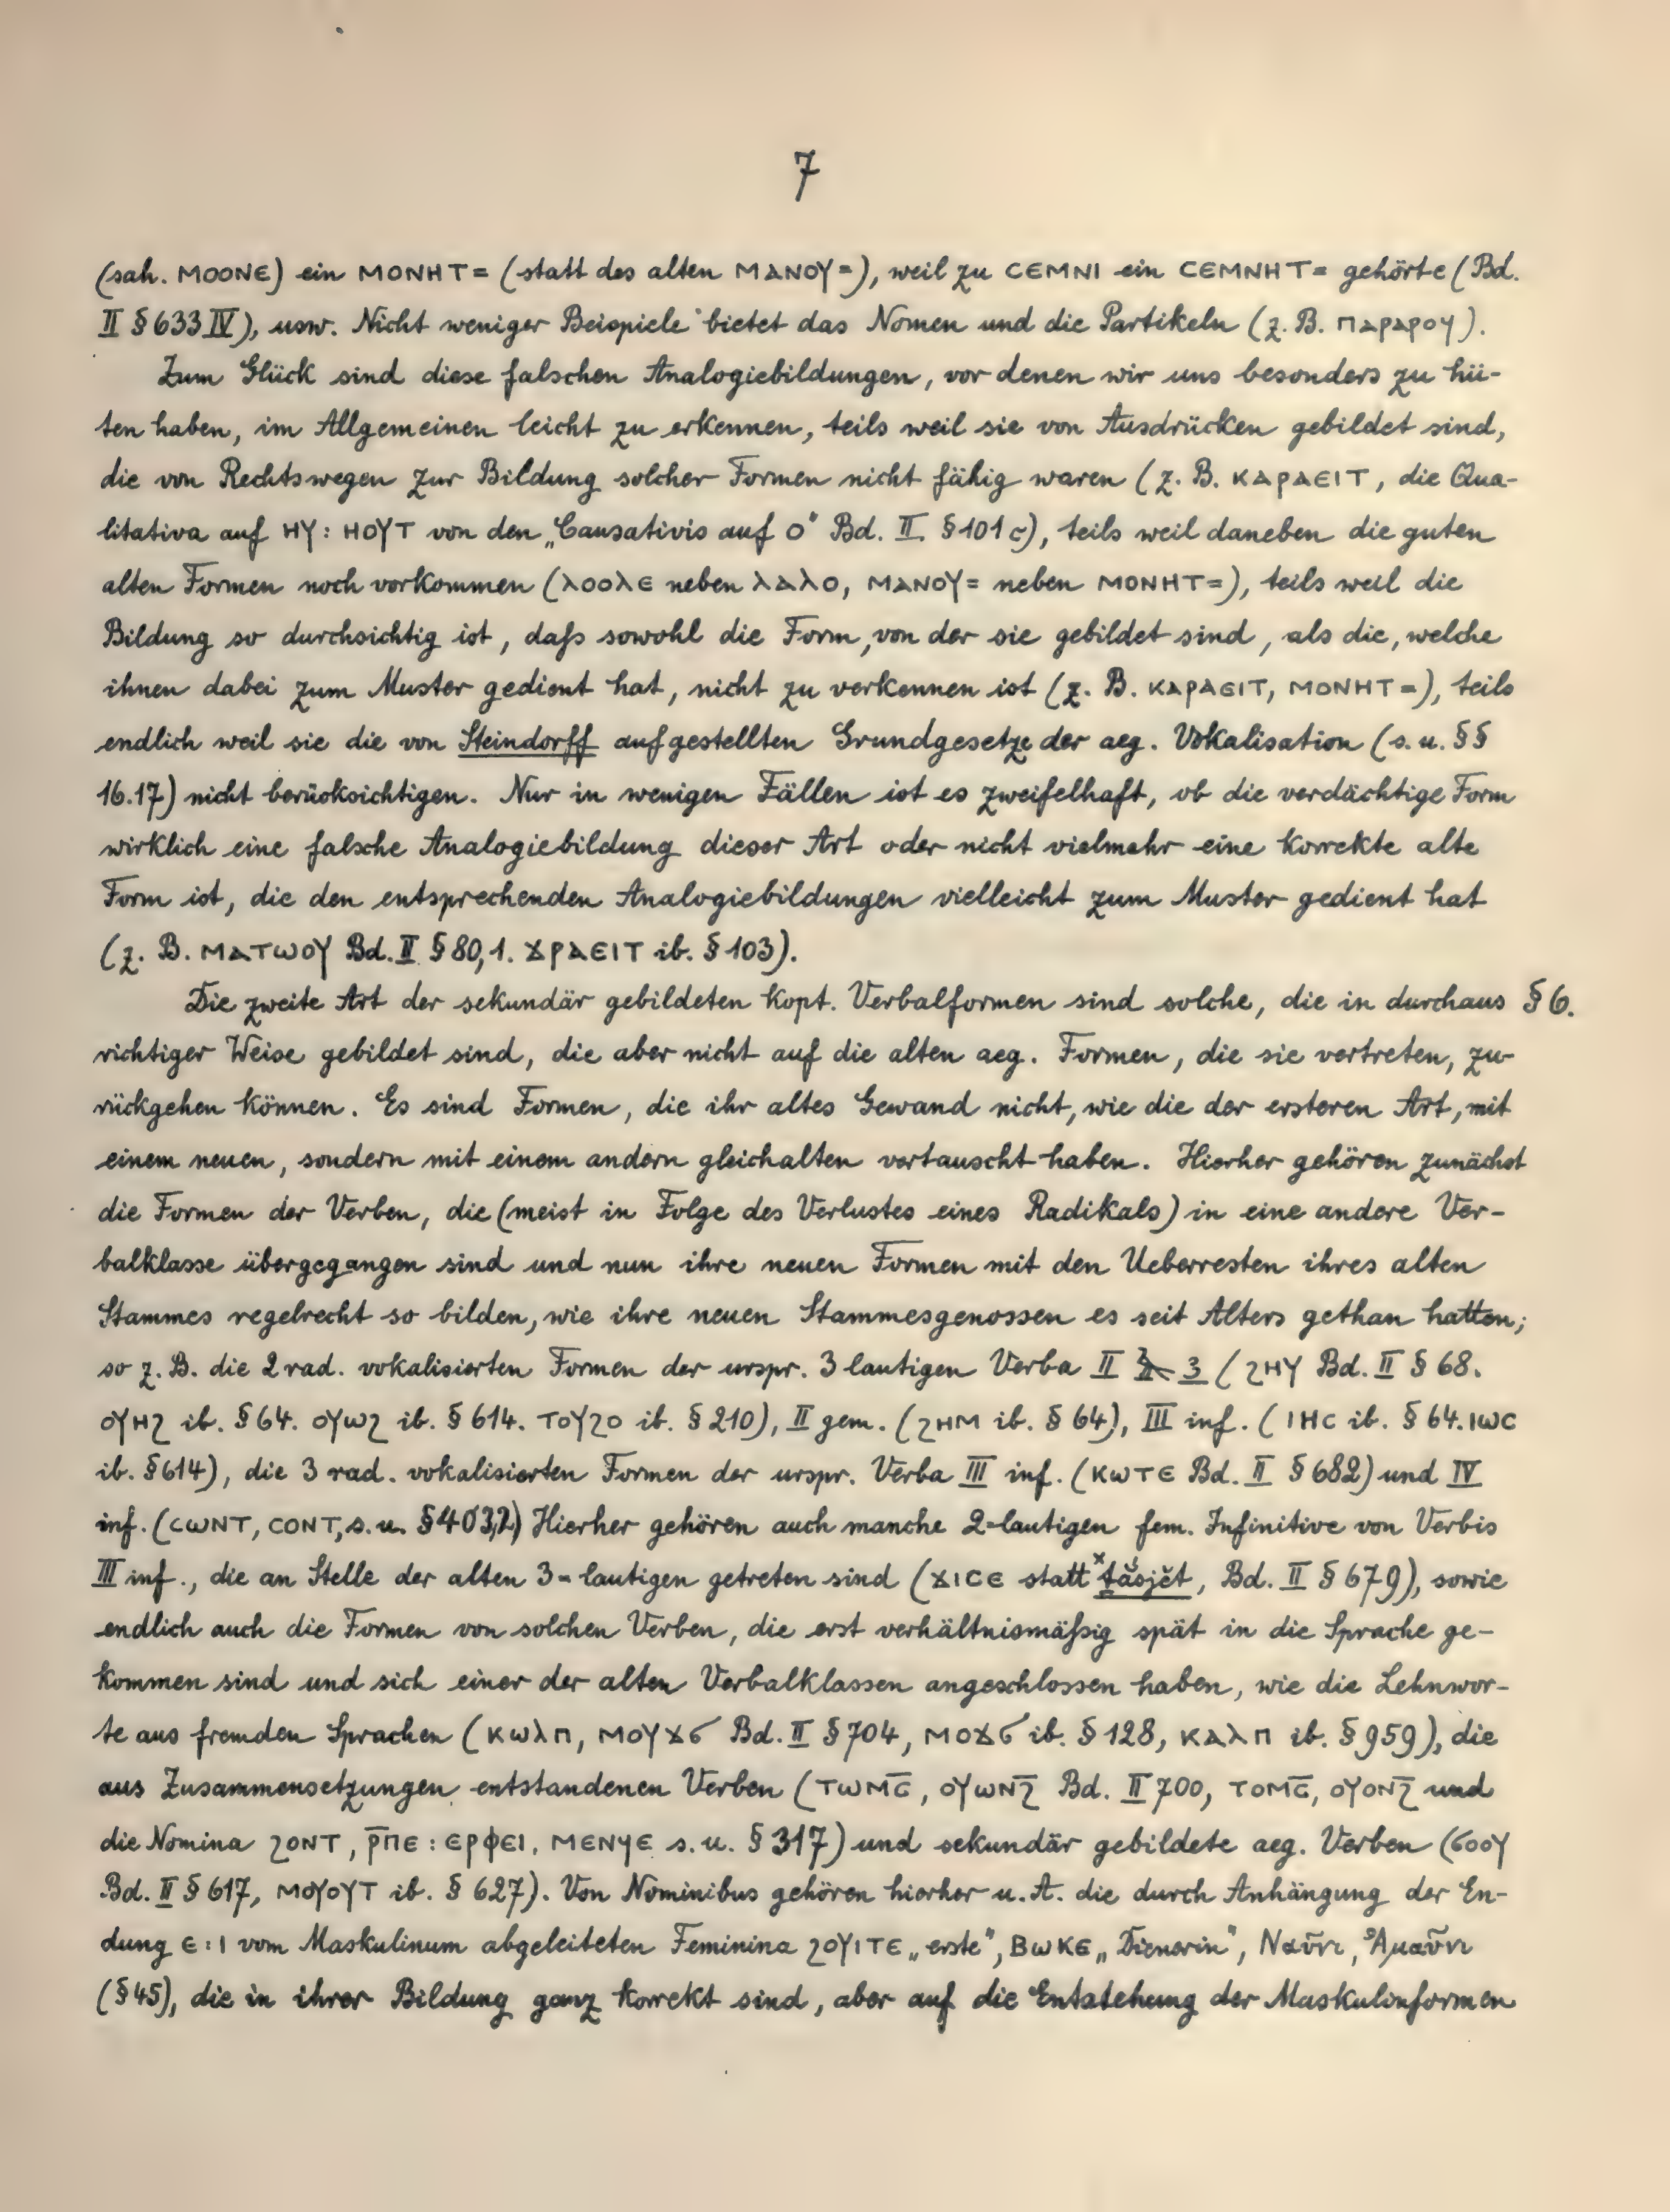 7
(sah. ⲘⲞⲞⲚⲈ) ein ⲘⲞⲚⲎⲦ= (statt des alten ⲘⲀⲚⲞⲨ=), weil zu ⲤⲈⲘⲚⲒ ein ⲤⲈⲘⲚⲎⲦ= gehörte (Bd.
II § 633 IV), usw. Nicht weniger Beispiele bietet das Nomen und die Partikeln (z. B. ⲡⲁⲣⲁⲣⲟⲩ).
Zum Glück sind diese falschen Analogiebildungen, vor denen wir uns besonders zu hü-
ten haben, im Allgemeinen leicht zu erkennen, teils weil sie von Ausdrücken gebildet sind,
die von Rechtswegen zur Bildung solcher Formen nicht fähig waren (z. B. ⲕⲁⲣⲁⲉⲓⲧ, die Qua-
litativa auf ⲎⲨ: ⲎⲞⲨⲦ von den „Causativis auf Ⲟ" Bd. II. § 101 c), teils weil daneben die guten
alten Formen noch vorkommen (ⲗⲟⲟⲗⲉ neben ⲗⲁⲗⲟ, ⲘⲀⲚⲞⲨ= neben ⲘⲞⲚⲎⲦ=), teils weil die
Bildung so durchsichtig ist, daſs sowohl die Form, von der sie gebildet sind, als die, welche
ihnen dabei zum Muster gedient hat, nicht zu verkennen ist (z. B. ⲕⲁⲣⲁⲉⲓⲧ, ⲘⲞⲚⲎⲦ=), teils
endlich weil sie die von Steindorff aufgestellten Grundgesetze der aeg. Vokalisation (s. u. §§
16.17) nicht berücksichtigen. Nur in wenigen Fällen ist es zweifelhaft, ob die verdächtige Form
wirklich eine falsche Analogiebildung dieser Art oder nicht vielmehr eine korrekte alte
Form ist, die den entsprechenden Analogiebildungen vielleicht zum Muster gedient hat
(z. B. ⲙⲁⲧⲱⲟⲩ Bd. II § 80,1. ϫⲣⲁⲉⲓⲧ ib. § 103).
Die zweite Art der sekundär gebildeten kopt. Verbalformen sind solche, die in durchaus § 6.
richtiger Weise gebildet sind, die aber nicht auf die alten aeg. Formen, die sie vertreten, zu-
rückgehen können. Es sind Formen, die ihr altes Gewand nicht, wie die der ersteren Art, mit
einem neuen, sondern mit einem andern gleichalten vertauscht haben. Hierher gehören zunächst
die Formen der Verben, die (meist in Folge des Verlustes eines Radikals) in eine andere Ver-
balklasse übergegangen sind und nun ihre neuen Formen mit den Ueberresten ihres alten
Stammes regelrecht so bilden, wie ihre neuen Stammesgenossen es seit Alters gethan hatten;
so z. B. die 2 rad. vokalisierten Formen der urspr. 3 lautigen Verba II 3 (ϩⲏⲩ Bd. II § 68.
ⲟⲩⲏϩ ib. § 64. ⲟⲩⲱϩ ib. § 614. ⲧⲟⲩϩⲟ ib. § 210), II gem. (ϩⲏⲙ ib. § 64), III inf. (ⲓⲏⲥ ib. § 64. ⲓⲱⲥ
ib. § 614), die 3 rad. vokalisierten Formen der urspr. Verba III inf. (ⲕⲱⲧⲉ Bd. II § 682) und IV
inf. (ⲥⲱⲛⲧ, ⲥⲟⲛⲧ, s. u. § 403,2) Hierher gehören auch manche 2-lautigen fem. Infinitive von Verbis
III inf., die an Stelle der alten 3-lautigen getreten sind (ϫⲓⲥⲉ statt ˣṯắsjĕt, Bd. II § 679), sowie
endlich auch die Formen von solchen Verben, die erst verhältnismäſsig spät in die Sprache ge-
kommen sind und sich einer der alten Verbalklassen angeschlossen haben, wie die Lehnwor-
te aus fremden Sprachen (ⲕⲱⲗⲡ, ⲙⲟⲩϫϭ Bd. II § 704, ⲙⲟϫϭ ib. § 128, ⲕⲁⲗⲡ ib. § 959), die
aus Zusammensetzungen entstandenen Verben (ⲧⲱⲙⲥ̅, ⲟⲩⲱⲛϩ̅ Bd. II 700, ⲧⲟⲙⲥ̅, ⲟⲩⲟⲛϩ̅ und
die Nomina ϩⲟⲛⲧ, ⲣ̅ⲡⲉ: ⲉⲣⲫⲉⲓ, ⲙⲉⲛϥⲉ s. u. § 317) und sekundär gebildete aeg. Verben (ϭⲟⲟⲩ
Bd. II § 617, ⲙⲟⲩⲟⲩⲧ ib. § 627). Von Nominibus gehören hierher u. A. die durch Anhängung der En-
dung ⲉ: ⲓ vom Maskulinum abgeleiteten Feminina ϩⲟⲩⲓⲧⲉ „erste", ⲃⲱⲕⲉ „Dienerin", Ναῦνι, Ἀμαῦνι
(§ 45), die in ihrer Bildung ganz korrekt sind, aber auf die Entstehung der Maskulinformen